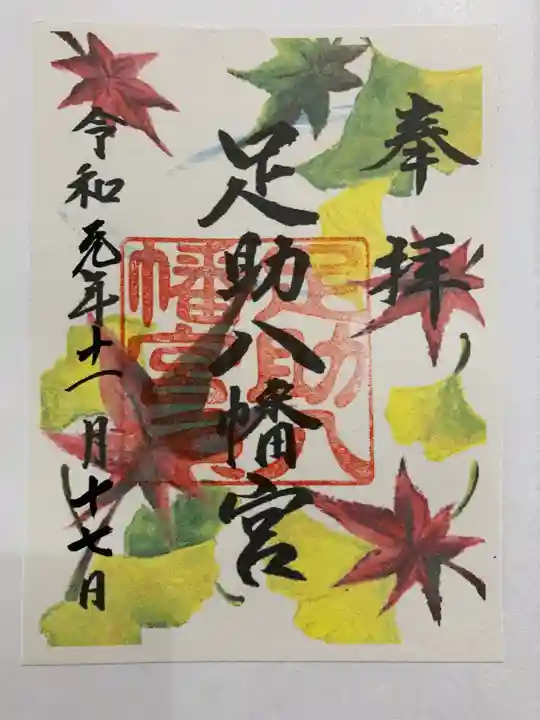 奉拝
足助八幡宮
足助八
幡宮
令和元年十一月十七日